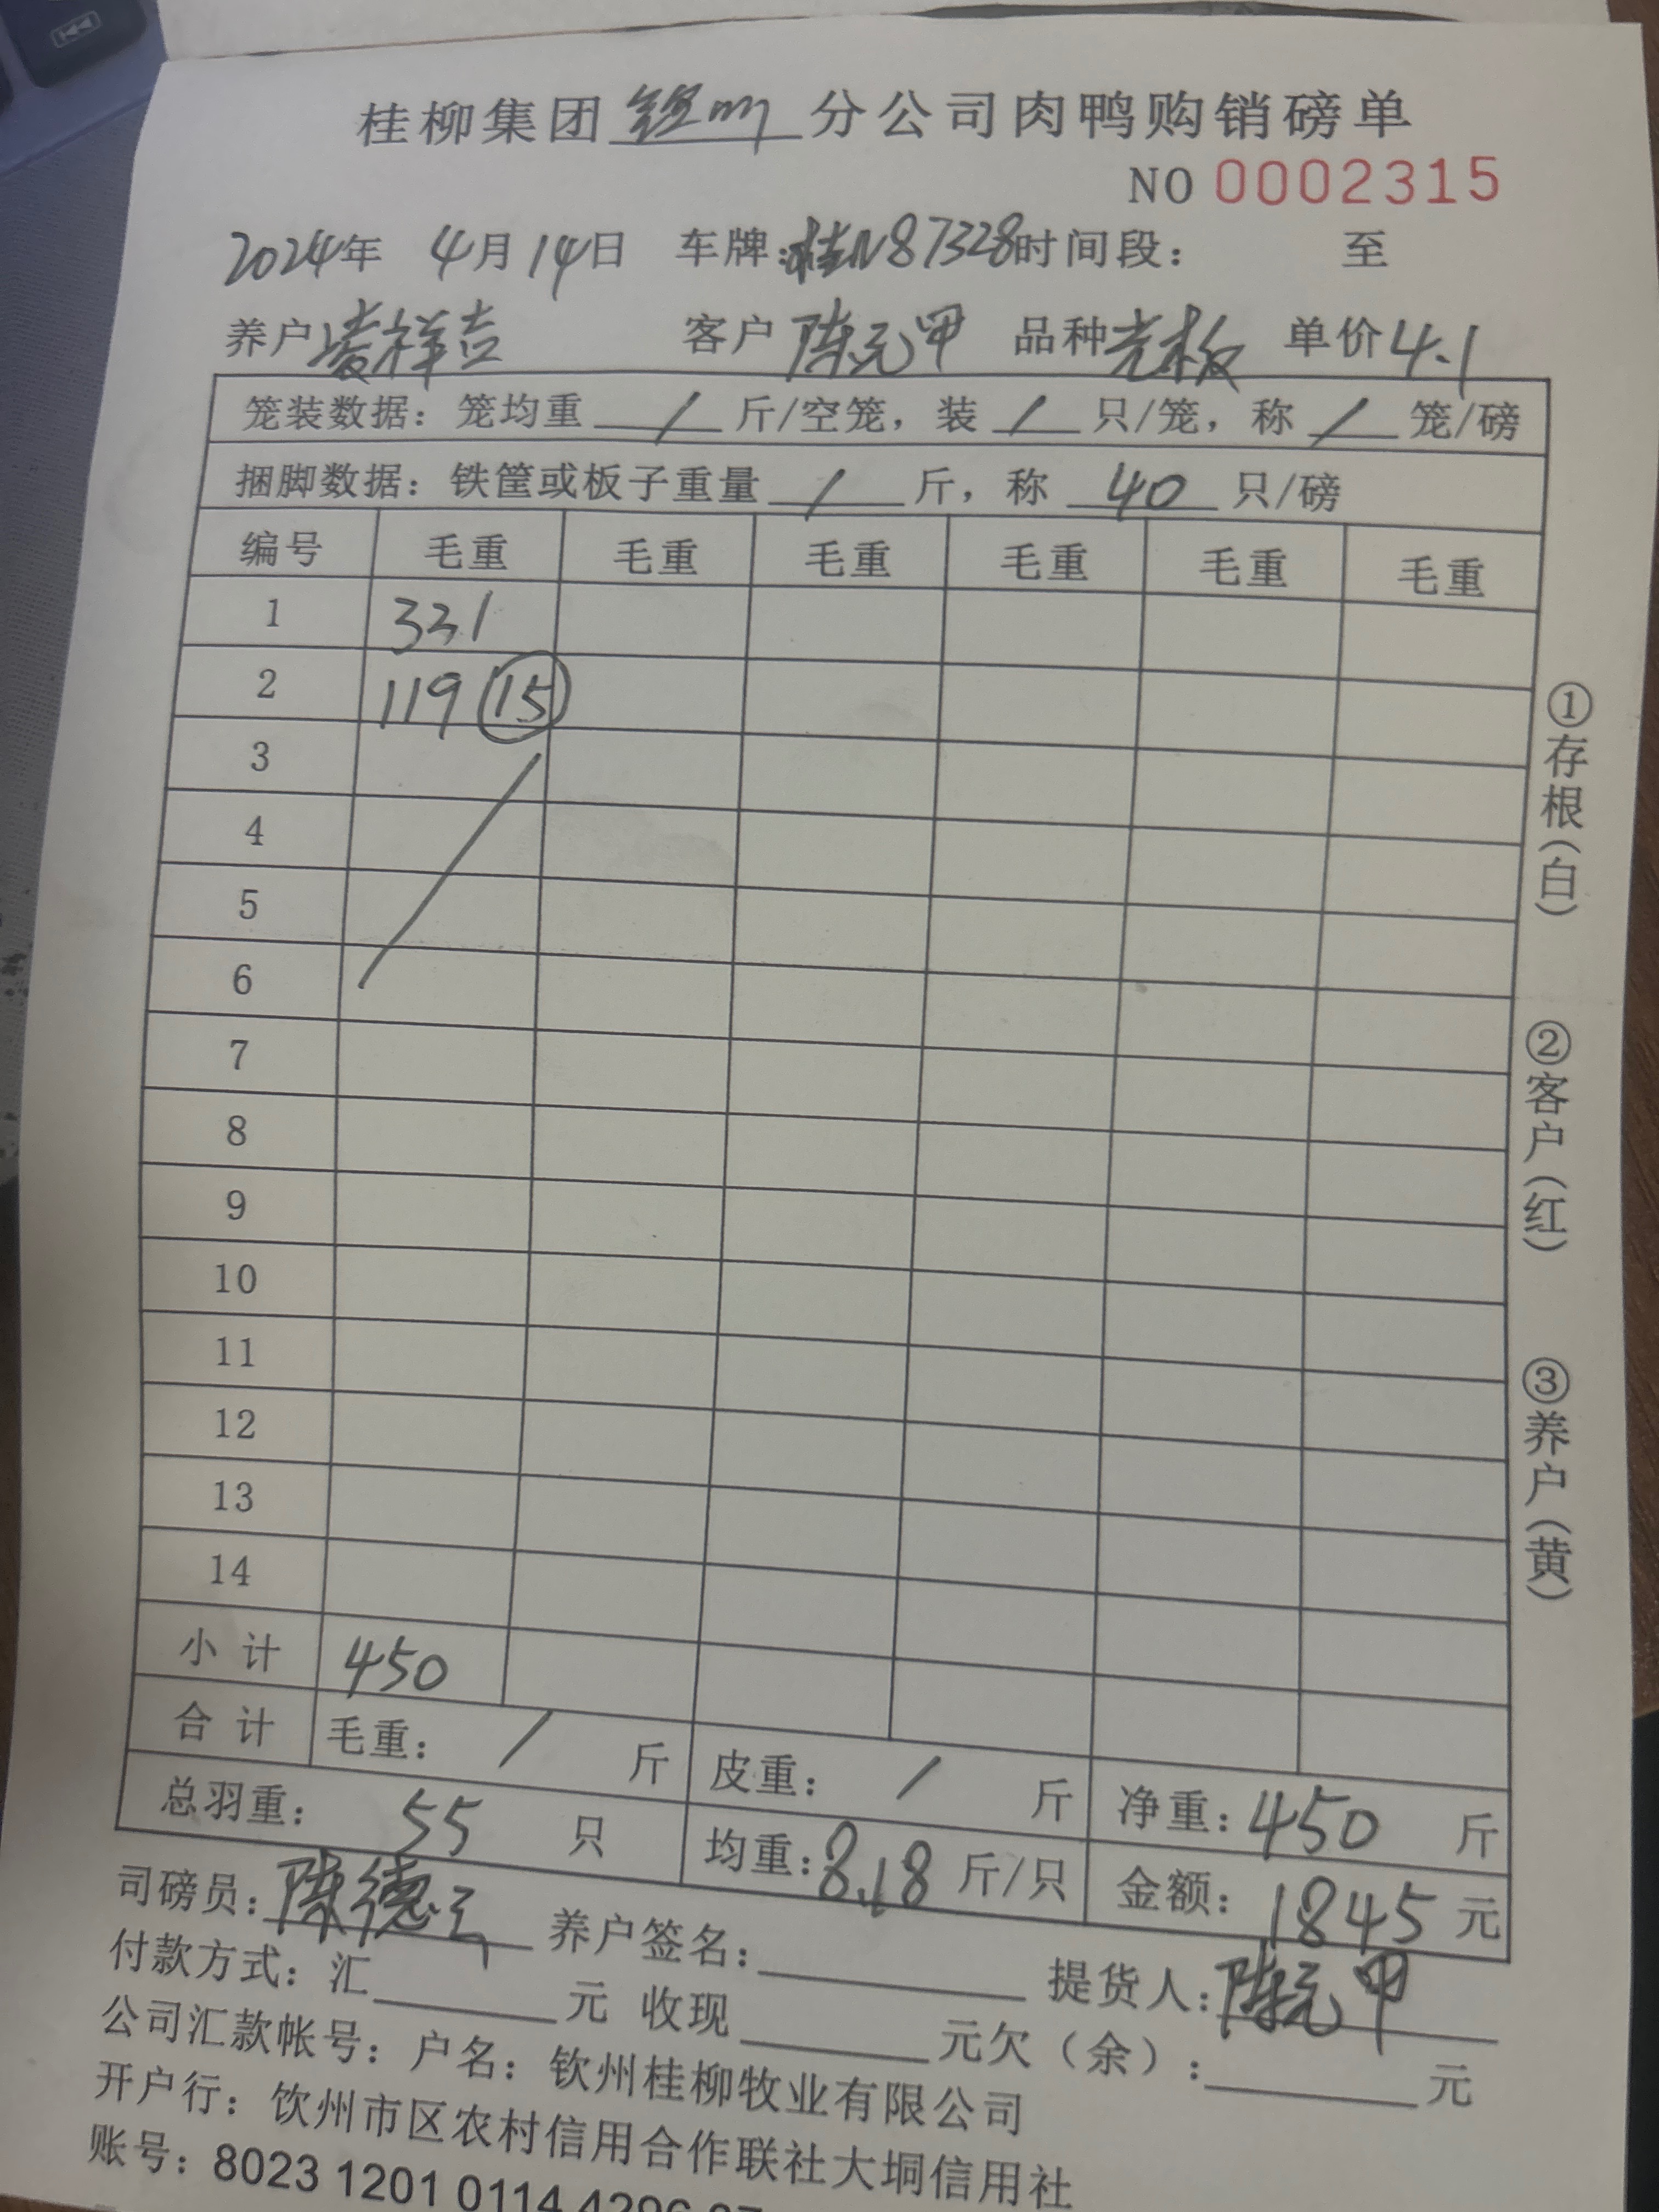 桂柳集团钦州分公司肉鸭购销磅单
NO 0002315
2024年 4月14日 车牌:桂N87328时间段: 至
养户凌祥吉 客户 陈元甲 品种光板 单价4.1
笼装数据:笼均重 / 斤/空笼,装 / 只/笼,称 / 笼/磅
捆脚数据:铁筐或板子重量 / 斤,称 40 只/磅
编号 毛重 毛重 毛重 毛重 毛重 毛重
1 331
2 119 15
3
4
5
6
7
8
9
10
11
12
13
14
小计 450
合计 毛重: / 斤 皮重: / 斤 净重:450 斤
总羽重: 55 只 均重:8.18 斤/只 金额:1845元
司磅员:陈德 养户签名: 提货人:陈元甲
付款方式:汇 元 收现 元欠(余): 元
公司汇款帐号:户名:钦州桂柳牧业有限公司
开户行:饮州市区农村信用合作联社大垌信用社
账号:8023 1201 0114 4296
①存根(白)
②客户(红)
③养户(黄)